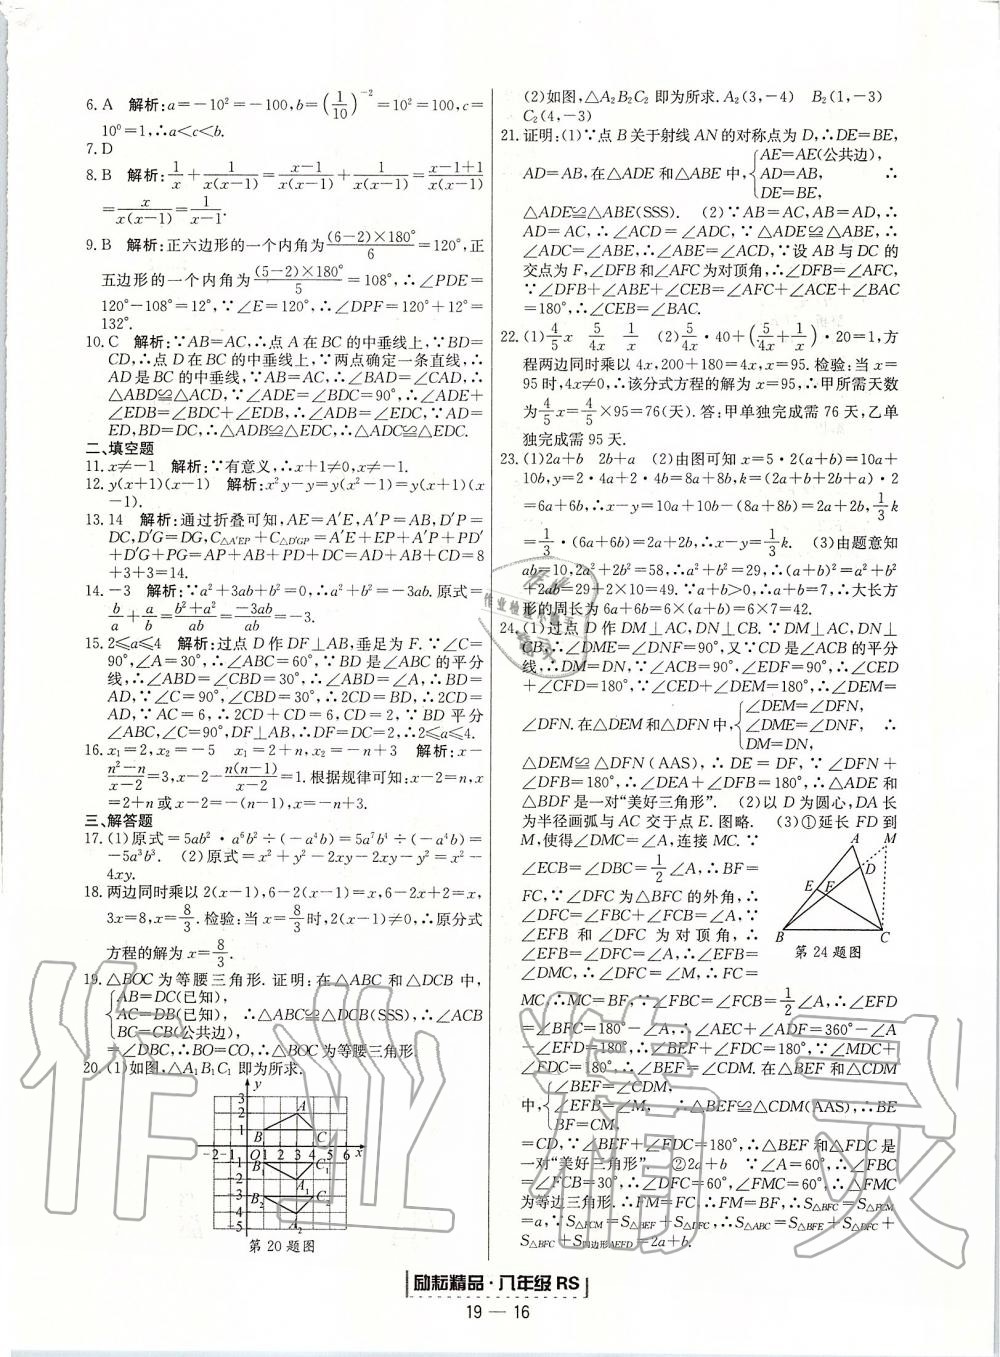 6. A　解析:a=-10²=-100,b=(1/10)⁻²=10²=100,c=
10⁰=1,∴a<c<b.
7. D
8. B　解析:1/x+1/x(x-1)=x-1/x(x-1)+1/x(x-1)=x-1+1/x(x-1)
=x/x(x-1)=1/x-1.
9. B　解析:正六边形的一个内角为(6-2)×180°/6=120°,正
五边形的一个内角为(5-2)×180°/5=108°,∴∠PDE=
120°-108°=12°,∵∠E=120°,∴∠DPF=120°+12°=
132°.
10. C　解析:∵AB=AC,∴点A在BC的中垂线上,∵BD=
CD,∴点D在BC的中垂线上,∵两点确定一条直线,∴
AD是BC的中垂线,∵AB=AC,∴∠BAD=∠CAD,∴
△ABD≌△ACD,∵∠ADE=∠BDC=90°,∴∠ADE+
∠EDB=∠BDC+∠EDB,∴∠ADB=∠EDC,∵AD=
ED,BD=DC,∴△ADB≌△EDC,∴△ADC≌△EDC.
二、填空题
11. x≠-1　解析:∵有意义,∴x+1≠0,x≠-1.
12. y(x+1)(x-1)　解析:x²y-y=y(x²-1)=y(x+1)(x
-1).
13. 14　解析:通过折叠可知,AE=A′E,A′P=AB,D′P=
DC,D′G=DG,C△A′EP+C△D′GP=A′E+EP+A′P+PD′
+D′G+PG=AP+AB+PD+DC=AD+AB+CD=8
+3+3=14.
14. -3　解析:∵a²+3ab+b²=0,∴a²+b²=-3ab.原式=
b/a+a/b=b²+a²/ab=-3ab/ab=-3.
15. 2≤a≤4　解析:过点D作DF⊥AB,垂足为F.∵∠C=
90°,∠A=30°,∴∠ABC=60°,∵BD是∠ABC的平分
线,∴∠ABD=∠CBD=30°,∴∠ABD=∠A,∴BD=
AD,∵∠C=90°,∠CBD=30°,∴2CD=BD,∴2CD=
AD,∵AC=6,∴2CD+CD=6,CD=2,∵BD平分
∠ABC,∠C=90°,DF⊥AB,∴DF=DC=2,∴2≤a≤4.
16. x₁=2,x₂=-5　x₁=2+n,x₂=-n+3　解析:x-
n²-n/x-2=3,x-2-n(n-1)/x-2=1.根据规律可知:x-2=n,x
=2+n或x-2=-(n-1),x=-n+3.
三、解答题
17. (1)原式=5ab²·a⁶b²÷(-a⁴b)=5a⁷b⁴÷(-a⁴b)=
-5a³b³.　(2)原式=x²+y²-2xy-2xy=y²=x²-
4xy.
18. 两边同时乘以2(x-1),6-2(x-1)=x,6-2x+2=x,
3x=8,x=8/3.检验:当x=8/3时,2(x-1)≠0,∴原分式
方程的解为x=8/3.
19. △BOC为等腰三角形.证明:在△ABC和△DCB中,
{AB=DC(已知),
AC=DB(已知)　∴△ABC≌△DCB(SSS),∴∠ACB
BC=CB(公共边),
=∠DBC,∴BO=CO,∴△BOC为等腰三角形.
20. (1)如图,△A₁B₁C₁即为所求.
第20题图
(2)如图,△A₂B₂C₂即为所求.A₂(3,-4)　B₂(1,-3)
C₂(4,-3)
21. 证明:(1)∵点B关于射线AN的对称点为D,∴DE=BE,
AD=AB,在△ADE和△ABE中,{AE=AE(公共边),
AD=AB,　∴
DE=BE,
△ADE≌△ABE(SSS).　(2)∵AB=AC,AB=AD,∴
AD=AC,∴∠ACD=∠ADC,∵△ADE≌△ABE,∴
∠ADC=∠ABE,∴∠ABE=∠ACD,∵设AB与DC的
交点为F,∠DFB和∠AFC为对顶角,∴∠DFB=∠AFC,
∵∠DFB+∠ABE+∠CEB=∠AFC+∠ACE+∠BAC
=180°,∴∠CEB=∠BAC.
22. (1)4/5x　5/4x　1/x　(2)5/4x·40+(5/4x+1/x)·20=1,方
程两边同时乘以4x,200+180=4x,x=95.检验:当x=
95时,4x≠0,∴该分式方程的解为x=95,∴甲所需天数
为4/5x=4/5×95=76(天).答:甲单独完成需76天,乙单
独完成需95天.
23. (1)2a+b　2b+a　(2)由图可知x=5·2(a+b)=10a+
10b,y=2·4a+2·4b=8a+8b,k=(2a+b+2b+a)·2
=6a+6b,∴x-y=10a+10b-(8a+8b)=2a+2b,∵1/3k
=1/3·(6a+6b)=2a+2b,∴x-y=1/3k.　(3)由题意知
ab=10,2a²+2b²=58,∴a²+b²=29,∴(a+b)²=a²+b²
+2ab=29+2×10=49.∵a+b>0,∴a+b=7,∴大长方
形的周长为6a+6b=6×(a+b)=6×7=42.
24. (1)过点D作DM⊥AC,DN⊥CB.∵DM⊥AC,DN⊥
CB,∴∠DME=∠DNF=90°,又∵CD是∠ACB的平分
线,∴DM=DN,∵∠ACB=90°,∠EDF=90°,∴∠CED
+∠CFD=180°,∵∠CED+∠DEM=180°,∴∠DEM=
∠DFN.在△DEM和△DFN中,{∠DEM=∠DFN,
∠DME=∠DNF,　∴
DM=DN,
△DEM≌△DFN(AAS),∴DE=DF,∵∠DFN+
∠DFB=180°,∴∠DEA+∠DFB=180°,∴△ADE和
△BDF是一对“美好三角形”.　(2)以D为圆心,DA长
为半径画弧与AC交于点E.图略.　(3)①延长FD到
M,使得∠DMC=∠A,连接MC.∵
∠ECB=∠DBC=1/2∠A,∴BF=
FC,∵∠DFC为△BFC的外角,∴
∠DFC=∠FBC+∠FCB=∠A,∵
∠EFB和∠DFC为对顶角,∴
∠EFB=∠DFC=∠A,∴∠EFB=
∠DMC,∴∠DFC=∠M,∴FC=
第24题图
MC,∴MC=BF,∵∠FBC=∠FCB=1/2∠A,∴∠EFD
=∠BFC=180°-∠A,∴∠AEC+∠ADF=360°-∠A
-∠EFD=180°,∴∠BEF+∠FDC=180°,∵∠MDC+
∠FDC=180°,∴∠BEF=∠CDM.在△BEF和△CDM
中,{∠BEF=∠CDM,
∠EFB=∠M,　∴△BEF≌△CDM(AAS),∴BE
BF=CM.
=CD,∵∠BEF+∠FDC=180°,∴△BEF和△FDC是
一对“美好三角形”.　②2a+b　∵∠A=60°,∴∠FBC
=∠FCB=30°,∴∠DFC=60°,∠FMC=60°,∴△FMC
为等边三角形.∴FM=FC,∴FM=BF,∴S△BFC=S△FCM
=a,∵S△FCM=S△BEF+S△DFC,∴S△ABC=S△BFE+S△DFC+
S△BFC+S四边形AEFD=2a+b.
励耘精品·八年级 RS
19 — 16
作业精灵